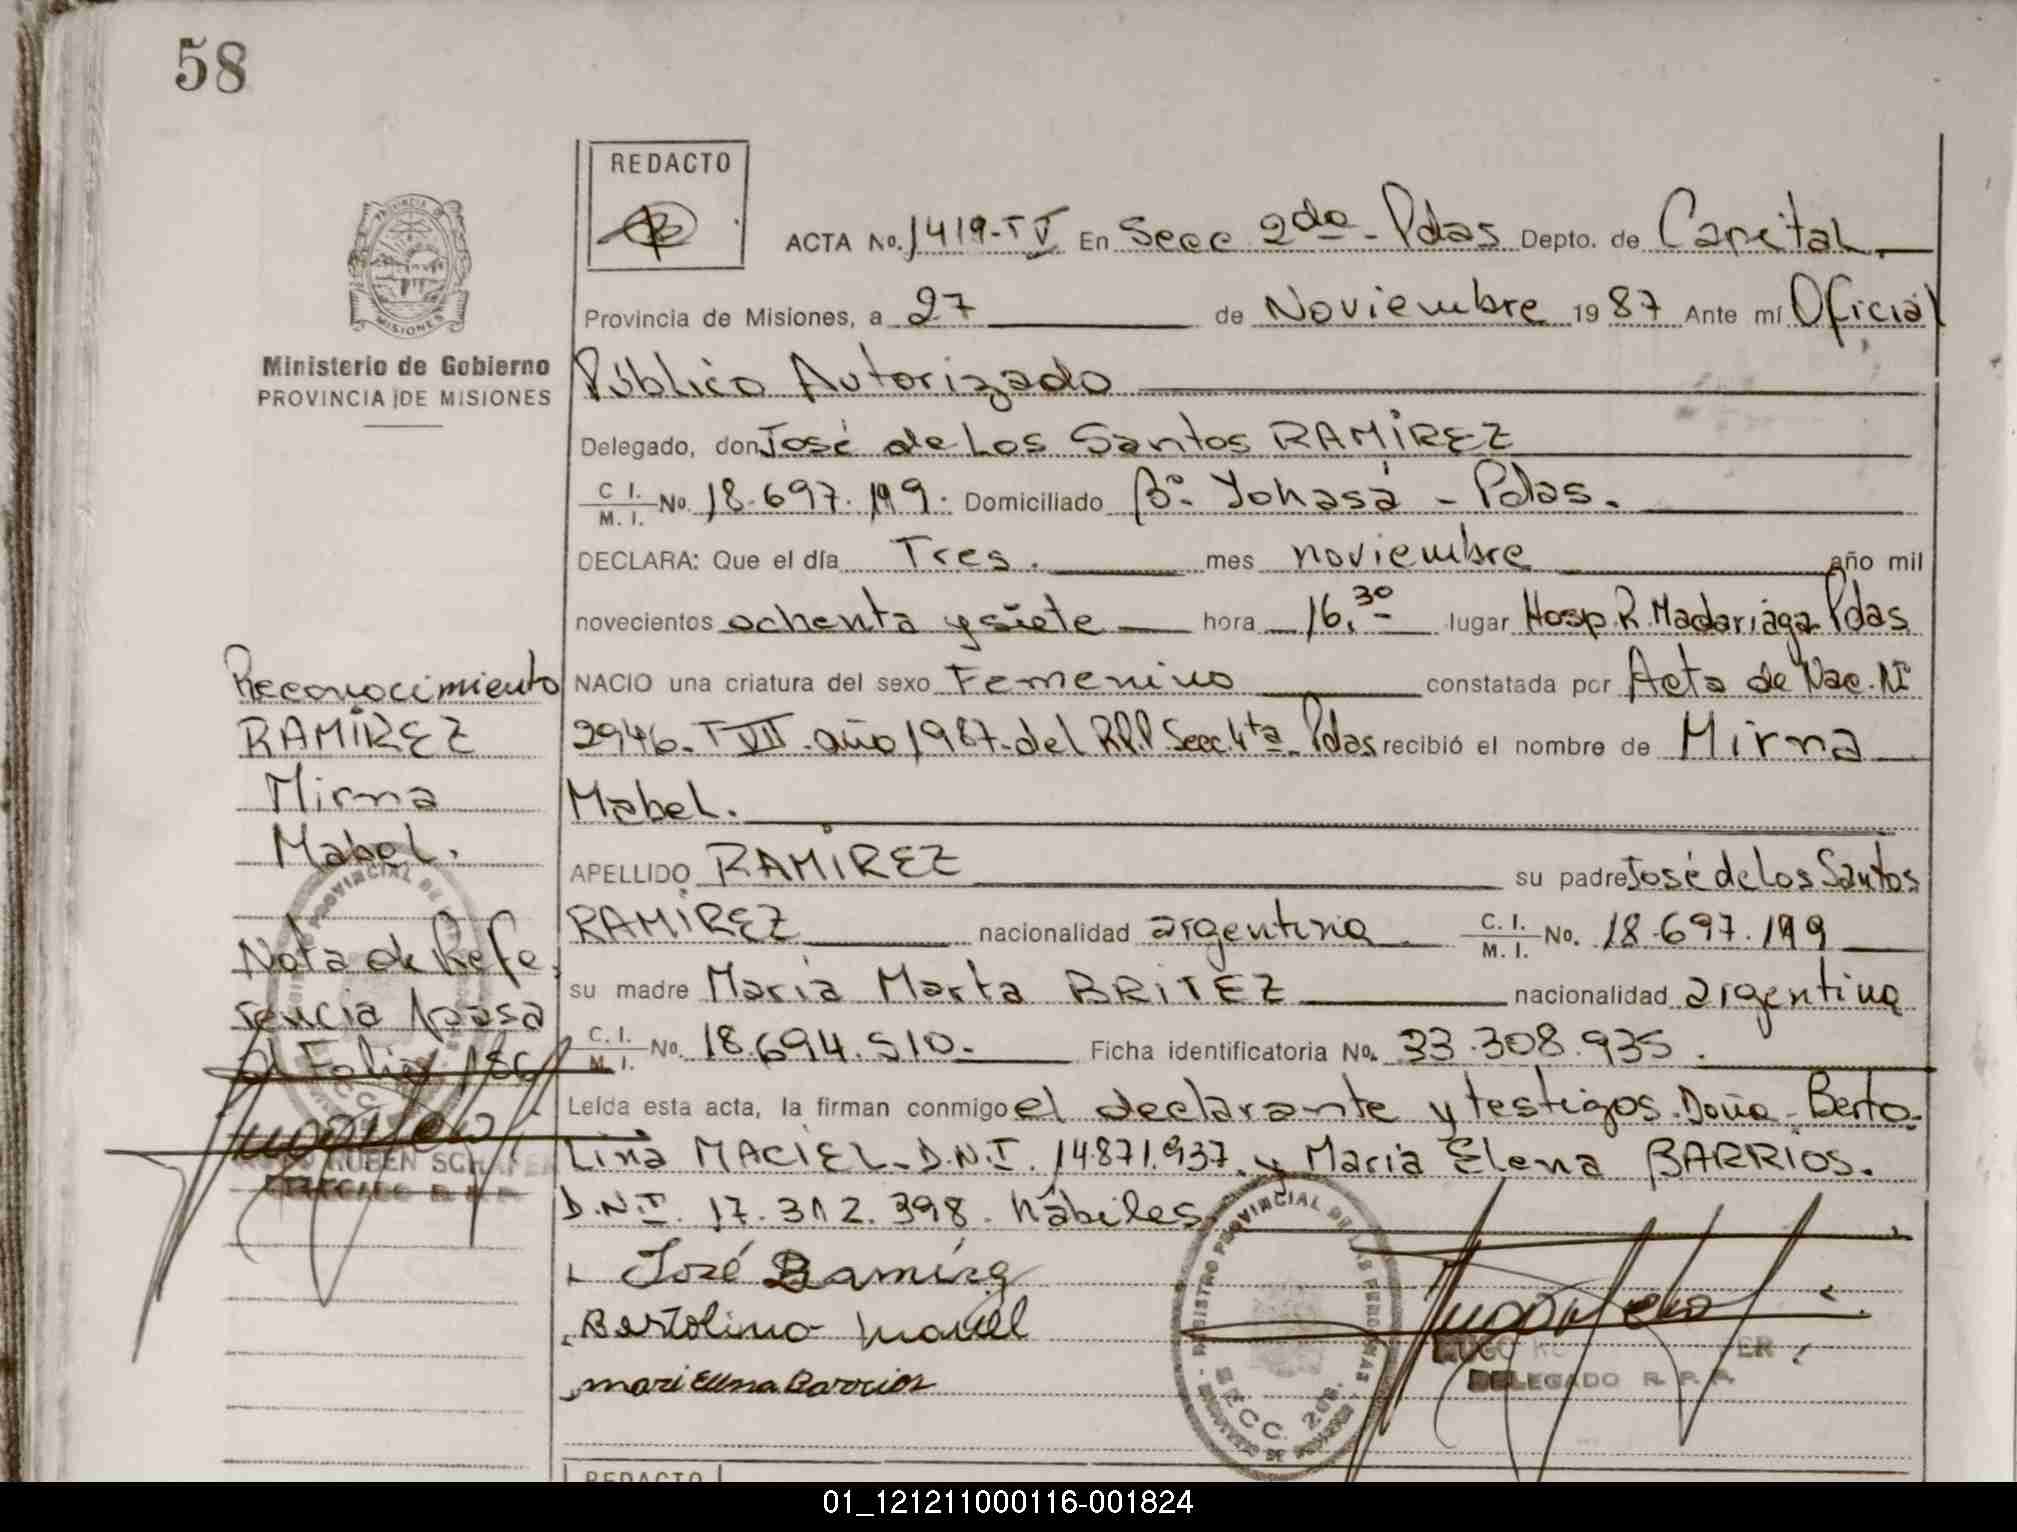 58
REDACTO
ACTA No. 1419-TV En Secc 2da - Pdas Depto. de Capital
Provincia de Misiones, a 27 de Noviembre 1987 Ante mí Oficial
Ministerio de Gobierno
PROVINCIA DE MISIONES
MISIONES
Público Autorizado
Delegado, don José de Los Santos RAMÍREZ
C.I. M.I. No. 18.697.199. Domiciliado Bº. Yohasá - Pdas.
DECLARA: Que el día Tres. mes noviembre año mil
novecientos ochenta y siete hora 16,30 lugar Hosp. R. Madariaga Pdas
NACIO una criatura del sexo Femenino constatada por Acta de Nac. Nº
2946. TVII. año 1987. del R.P.P Secc. 4ta. Pdas recibió el nombre de Mirna
Mabel.
APELLIDO RAMÍREZ su padre José de Los Santos
RAMÍREZ nacionalidad argentina C.I. M.I. No. 18.697.199
su madre María Marta BRÍTEZ nacionalidad argentina
C.I. M.I. No. 18.694.510.- Ficha identificatoria No. 33.308.935.
Leída esta acta, la firman conmigo el declarante y testigos. Doña. Berto-
lina MACIEL. D.N.I. 14.871.937. y María Elena BARRIOS.
D.N.I. 17.312.398. hábiles.
José Ramírez
Bertolina Maciel
mari Elena Barrios
Reconocimiento
RAMÍREZ
Mirna
Mabel.
Nota de Refe-
rencia pasa
al Folio 186
RUBEN SCHAFER
DELEGADO R. P. P.
REGISTRO PROVINCIAL DE LAS PERSONAS
SECC. 2da.
HUGO
DELEGADO R. P. P.
REDACTO
01_121211000116-001824